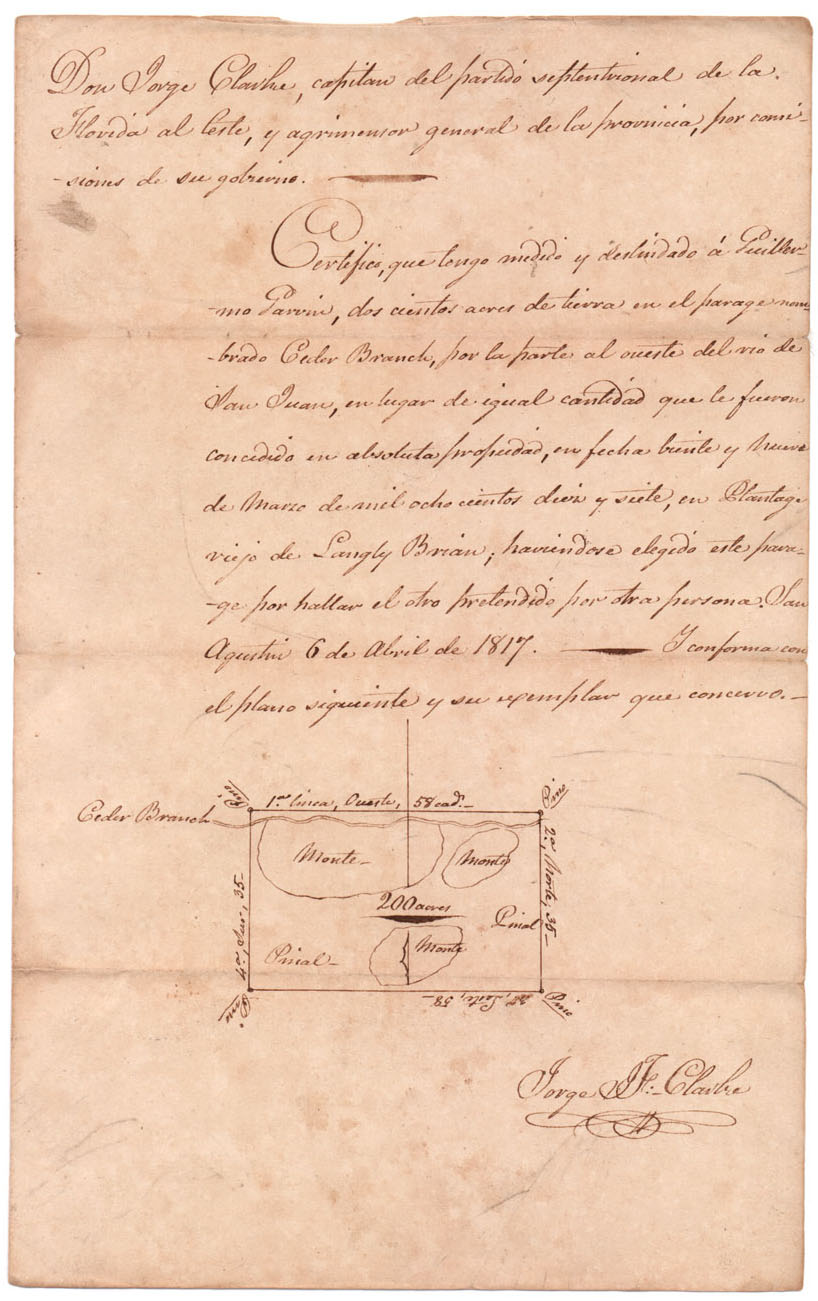 Don Jorge Clarke, capitan del partido septentrional de la
Florida al leste, y agrimensor general de la provincia, por comi-
-siones de su gobierno.
Certifico, que tengo medido y deslindado á Guiller-
-mo Garvin, dos cientos acres de tierra en el parage nom-
-brado Ceder Branch, por la parte al oueste del rio de
San Juan, en lugar de igual cantidad que le fueron
concedido en absoluta propiedad, en fecha biente y nueve
de Marzo de mil ocho cientos diez y siete, en Plantage
viejo de Langly Brian; haviendose elegido este para-
-ge por hallar el otro pretendido por otra persona. San
Agustin 6 de Abril de 1817. Y conforma con
el plano siguiente y su exemplar que concervo.
Pino
1ª linea, Oueste, 58 cads.
Pino
Ceder Branch
Monte
Monte
2ª, Norte, 35
200 acres
Pinal
4ª, Sur, 35
Pinal
Monte
Pino
Leste, 58
Pino
Jorge J. F. Clarke